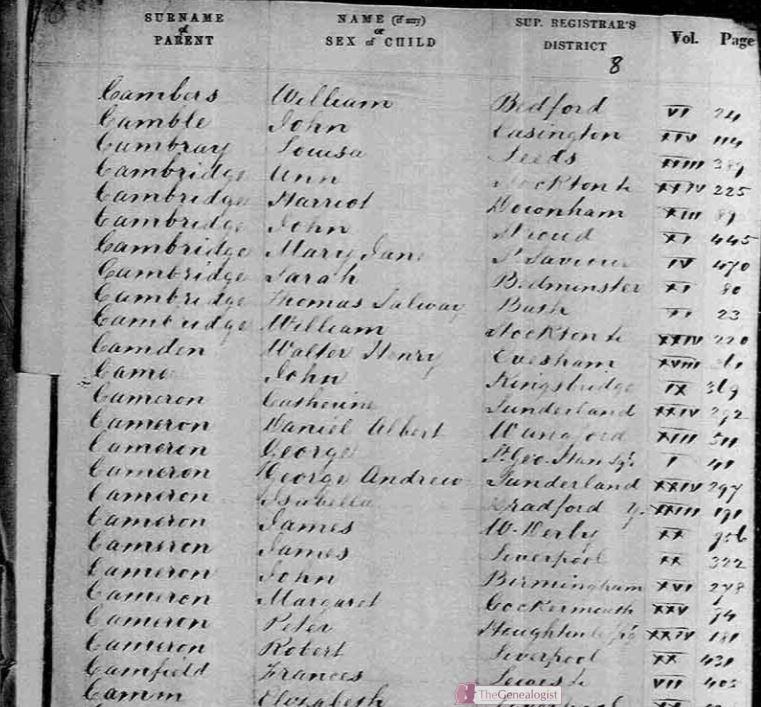 SURNAME of PARENT NAME (if any) or SEX of CHILD SUP. REGISTRAR'S DISTRICT Vol. Page
8
Cambers William Bedford VI 24
Camble John Easington XXIV 114
Cambray Louisa Leeds XXIII 389
Cambridge Ann Stockton &c XXIV 225
Cambridge Harriot Downham XIII 89
Cambridge John Stroud XI 445
Cambridge Mary Jane St Saviour IV 470
Cambridge Sarah Bedminster XI 80
Cambridge Thomas Salway Bath XI 23
Cambridge William Stockton &c XXIV 220
Camden Walter Henry Evesham XVIII
Came John Kingsbridge IX 369
Cameron Catherine Sunderland XXIV 292
Cameron Daniel Albert Wangford XIII 511
Cameron George St Geo. Han Sq. I 41
Cameron George Andrew Sunderland XXIV 297
Cameron Isabella Bradford Y. XXIII 191
Cameron James W. Derby XX
Cameron James Liverpool XX 322
Cameron John Birmingham XVI 278
Cameron Margaret Cockermouth XXV 74
Cameron Peter Houghton le Sp'g XXIV 181
Cameron Robert Liverpool XX 431
Camfield Frances Lewes &c VII 403
Camm Elizabeth
TheGenealogist